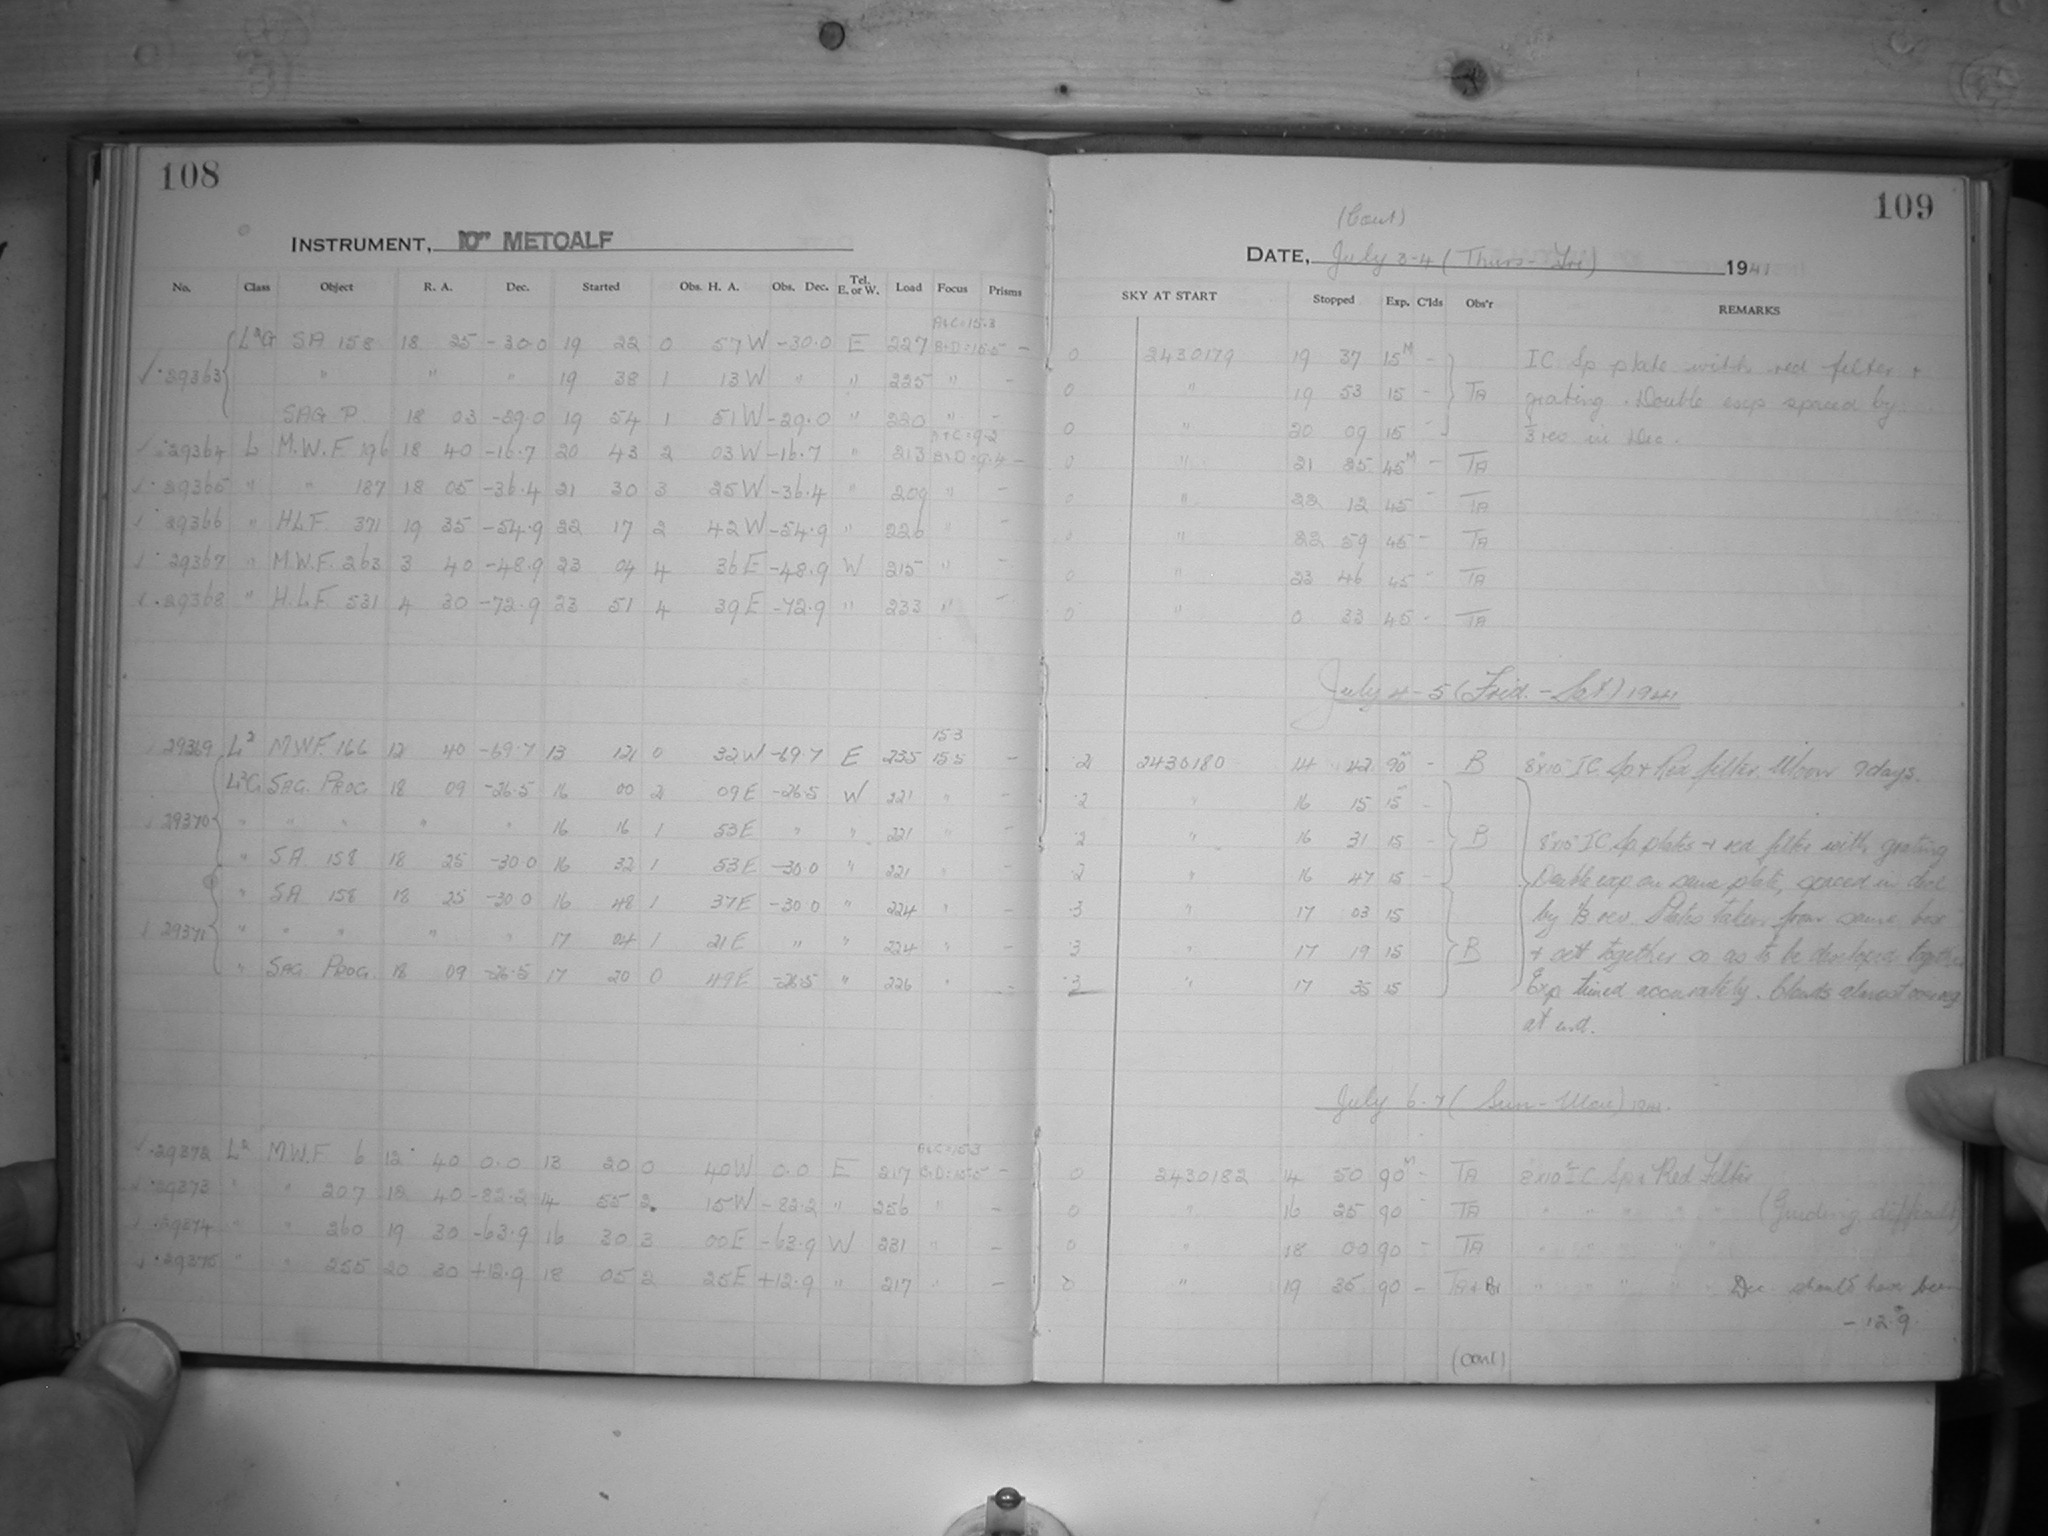 108
INSTRUMENT, 10" METCALF
No. Class Object R. A. Dec. Started Obs. H. A. Obs. Dec. Tel. E. or W. Load Focus Prisms
A+C=15.3
L²G SA 158 18 25 -30.0 19 22 0 57W -30.0 E 227 B+D=15.5 -
✓·29363 " " " 19 38 1 13W " " 225 " -
SAG P. 18 03 -29.0 19 54 1 51W -29.0 " 220 " -
A+C=9.2
✓·29364 L M.W.F 196 18 40 -16.7 20 43 2 03W -16.7 " 213 B+D=9.4 -
✓·29365 " " 187 18 05 -36.4 21 30 3 25W -36.4 " 209 " -
✓·29366 " H.L.F. 371 19 35 -54.9 22 17 2 42W -54.9 " 226 " -
✓·29367 " M.W.F. 263 3 40 -48.9 23 04 4 36E -48.9 W 215 " -
✓·29368 " H.L.F. 531 4 30 -72.9 23 51 4 39E -72.9 " 233 " -
15.3
29369 L² M.W.F. 166 12 40 -69.7 13 12 0 32W -69.7 E 235 15.5 -
L²G SAG. PROG. 18 09 -26.5 16 00 2 09E -26.5 W 221 " -
29370 " " " " " 16 16 1 53E " " 221 " -
" SA 158 18 25 -30.0 16 32 1 53E -30.0 " 221 " -
" SA 158 18 25 -30.0 16 48 1 37E -30.0 " 224 " -
29371 " " " " " 17 04 1 21E " " 224 " -
" SAG PROG. 18 09 -26.5 17 20 0 49E -26.5 " 226 " -
A+C=15.3
✓·29372 L² M.W.F 6 12 40 0.0 13 20 0 40W 0.0 E 217 B+D=15.5 -
✓·29373 " " 207 12 40 -82.2 14 55 2 15W -82.2 " 256 " -
✓·29374 " " 260 19 30 -63.9 16 30 3 00E -63.9 W 231 " -
✓·29375 " " 255 20 30 +12.9 18 05 2 25E +12.9 " 217 " -
109
(Cont)
DATE, July 3-4 (Thurs - Fri) 1941
SKY AT START Stopped Exp. C'lds Obs'r REMARKS
0 2430179 19 37 15ᴹ - IC Sp plate with red filter +
0 " 19 53 15 - TA grating. Double exp spaced by
0 " 20 09 15 - ⅓ rev in Dec.
0 " 21 25 45ᴹ - TA
0 " 22 12 45 - TA
0 " 22 59 45 - TA
0 " 23 46 45 - TA
0 " 0 33 45 - TA
July 4-5 (Frid. - Sat) 1941
2 2430180 14 42 90ᵐ - B 8x10" IC Sp + Red filter Moon 9 days.
2 " 16 15 15ᵐ -
2 " 16 31 15 - B 8x10" IC Sp plates + red filter with grating
2 " 16 47 15 - Double exp on same plate, spaced in decl
3 " 17 03 15 by ⅓ rev. Plates taken from same box
3 " 17 19 15 B + together so as to be developed together
3 " 17 35 15 Exp timed accurately. Clouds almost
at end.
July 6-7 (Sun - Mon) 1941.
0 2430182 14 50 90ᴹ - TA 8x10" I C Sp + Red Filter
0 " 16 25 90 - TA " " " " " (Guiding difficult)
0 " 18 00 90 - TA " " " " "
0 " 19 35 90 - TA + Br " " " " " Dec should have been
-12°.9.
(cont)